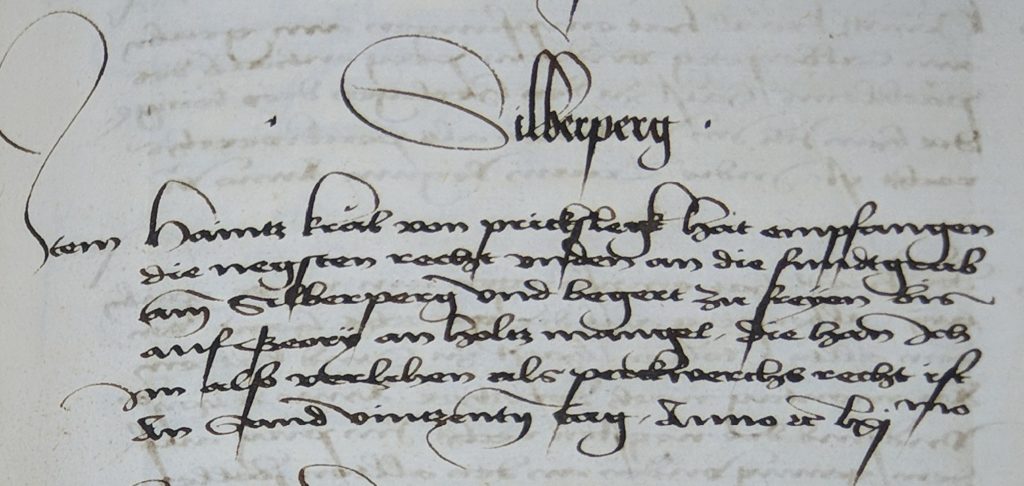 Silberperg
Item Haintz krab von pricksslegk hat empfangen
die negsten recht vnden an die fundtgrub
am Silberperg vnd begert zu freyen bis
auf Jeory an holtz mangel, die han Ich
Im alss verlihen als perkwerchs recht ist
An Sand vintzentzy tag, Anno etc lxj mo